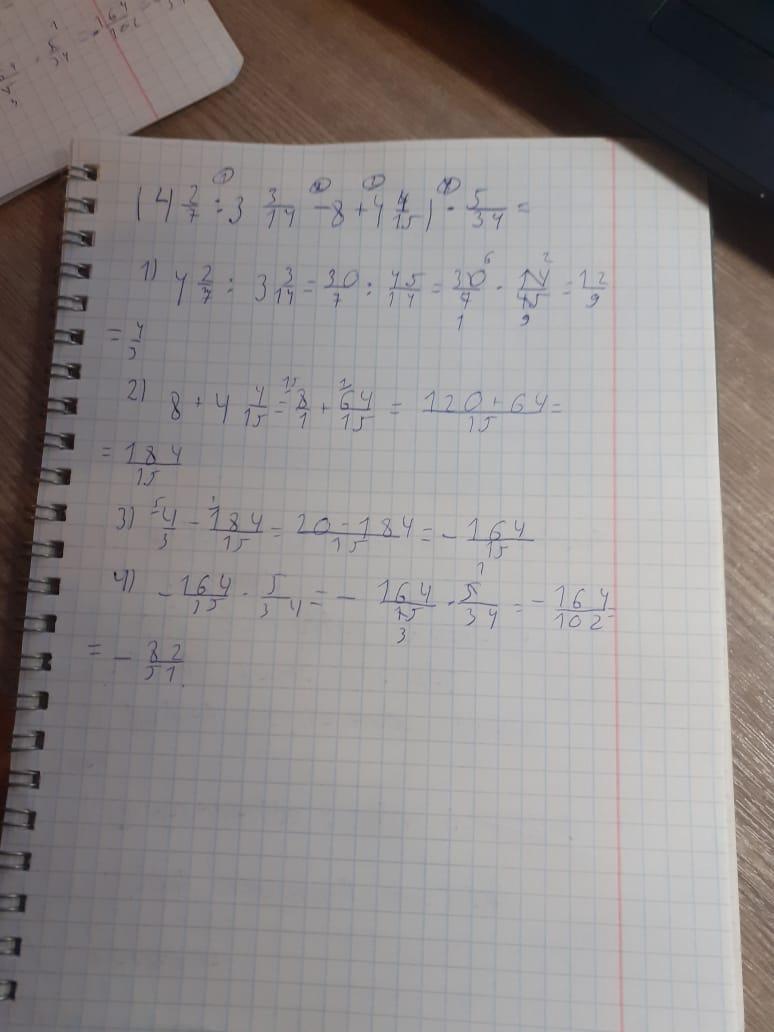 164/102
(4 2/7 : 3 3/14 - 8 + 4 4/15) · 5/34 =
1) 4 2/7 : 3 3/14 = 30/7 : 45/14 = 30/7 · 14/45 = 12/9
= 4/3
2) 8 + 4 4/15 = 8/1 + 64/15 = 120+64/15 =
= 184/15
3) 4/3 - 184/15 = 20-184/15 = - 164/15
4) - 164/15 · 5/34 = - 164/15 · 5/34 = - 164/102
= - 82/51